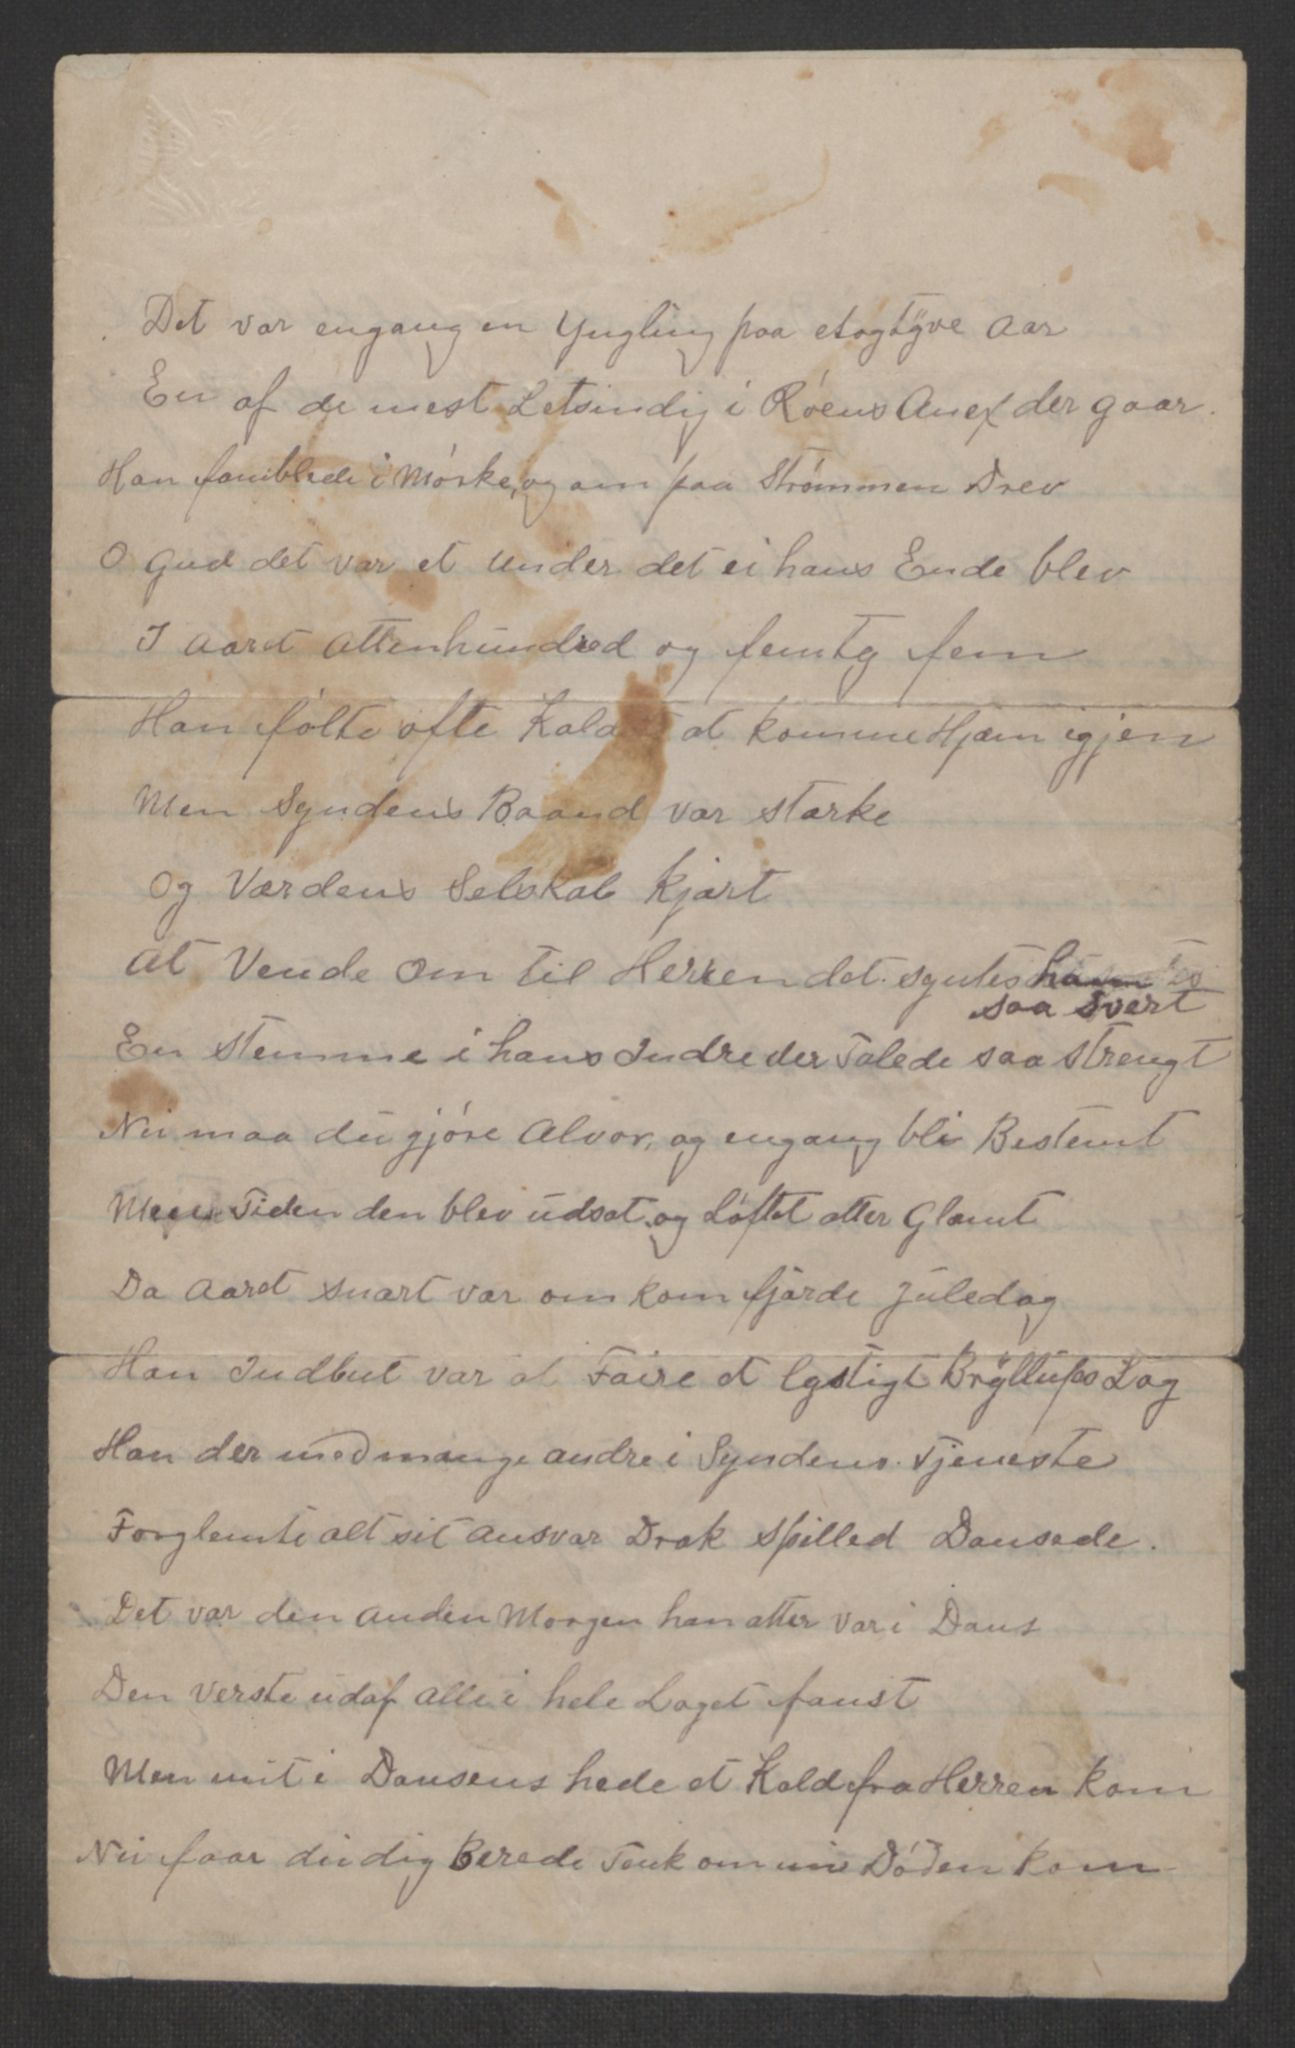 Det var engang en Yngling paa etogtyve Aar
En af de mest Letsindig i Röens Anex der gaar.
Han famblede i Mörke, og om paa Strömmen Drev
O Gud det var et under det ei hans Ende blev
I aaret attenhundred og femtg fem
Han fölte ofte Kaldet at komme Hjem igjen
Men Syndens Baand var starke
Og Værdens Selskab kjärt
At Vende om til Herren det syntes ham
saa svert
En stemme i hans Indre der Talede saa strengt
Nu maa du gjöre Alvor, og engang bli Bestemt
Men Tiden den blev udsat og Löftet atter Glæmt
Da Aaret snart var om kom fjärde juledag
Han Indbut var at Faire et lystigt Bryllups Lag
Han der med mange andre i Syndens Tjeneste
Forglemte alt sit ansvar Drak spilled Dansede.
Det var den anden Morgen han atter var i Dans
Den verste udaf alle i hele Laget fanst
Men mit i Dansens hede et Kald fra Herren kom
Nu faar du dig Berede Tenk om nu Döden kom